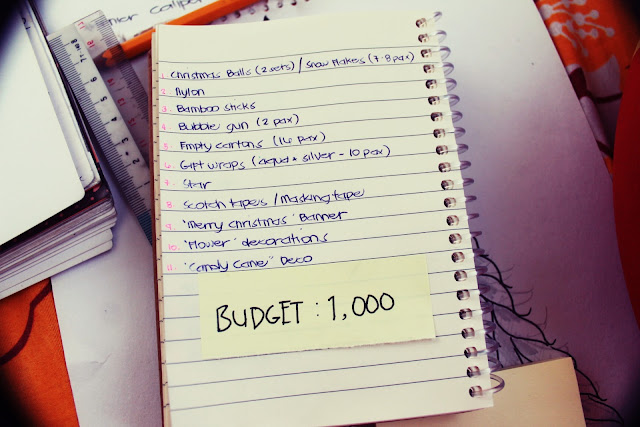 nior caliper
1. Christmas Balls (2 sets) / Snow Flakes (7-8 pax)
2. Nylon
3. Bamboo sticks
4. Bubble gun (2 pax)
5. Empty cartons (14 pax)
6. Gift wraps (aqua * silver - 10 pax)
7. Star
8. Scotch tapes / masking tape
9. "Merry christmas" Banner
10. "Flower" decorations
11. "Candy Cane" Deco
BUDGET : 1,000